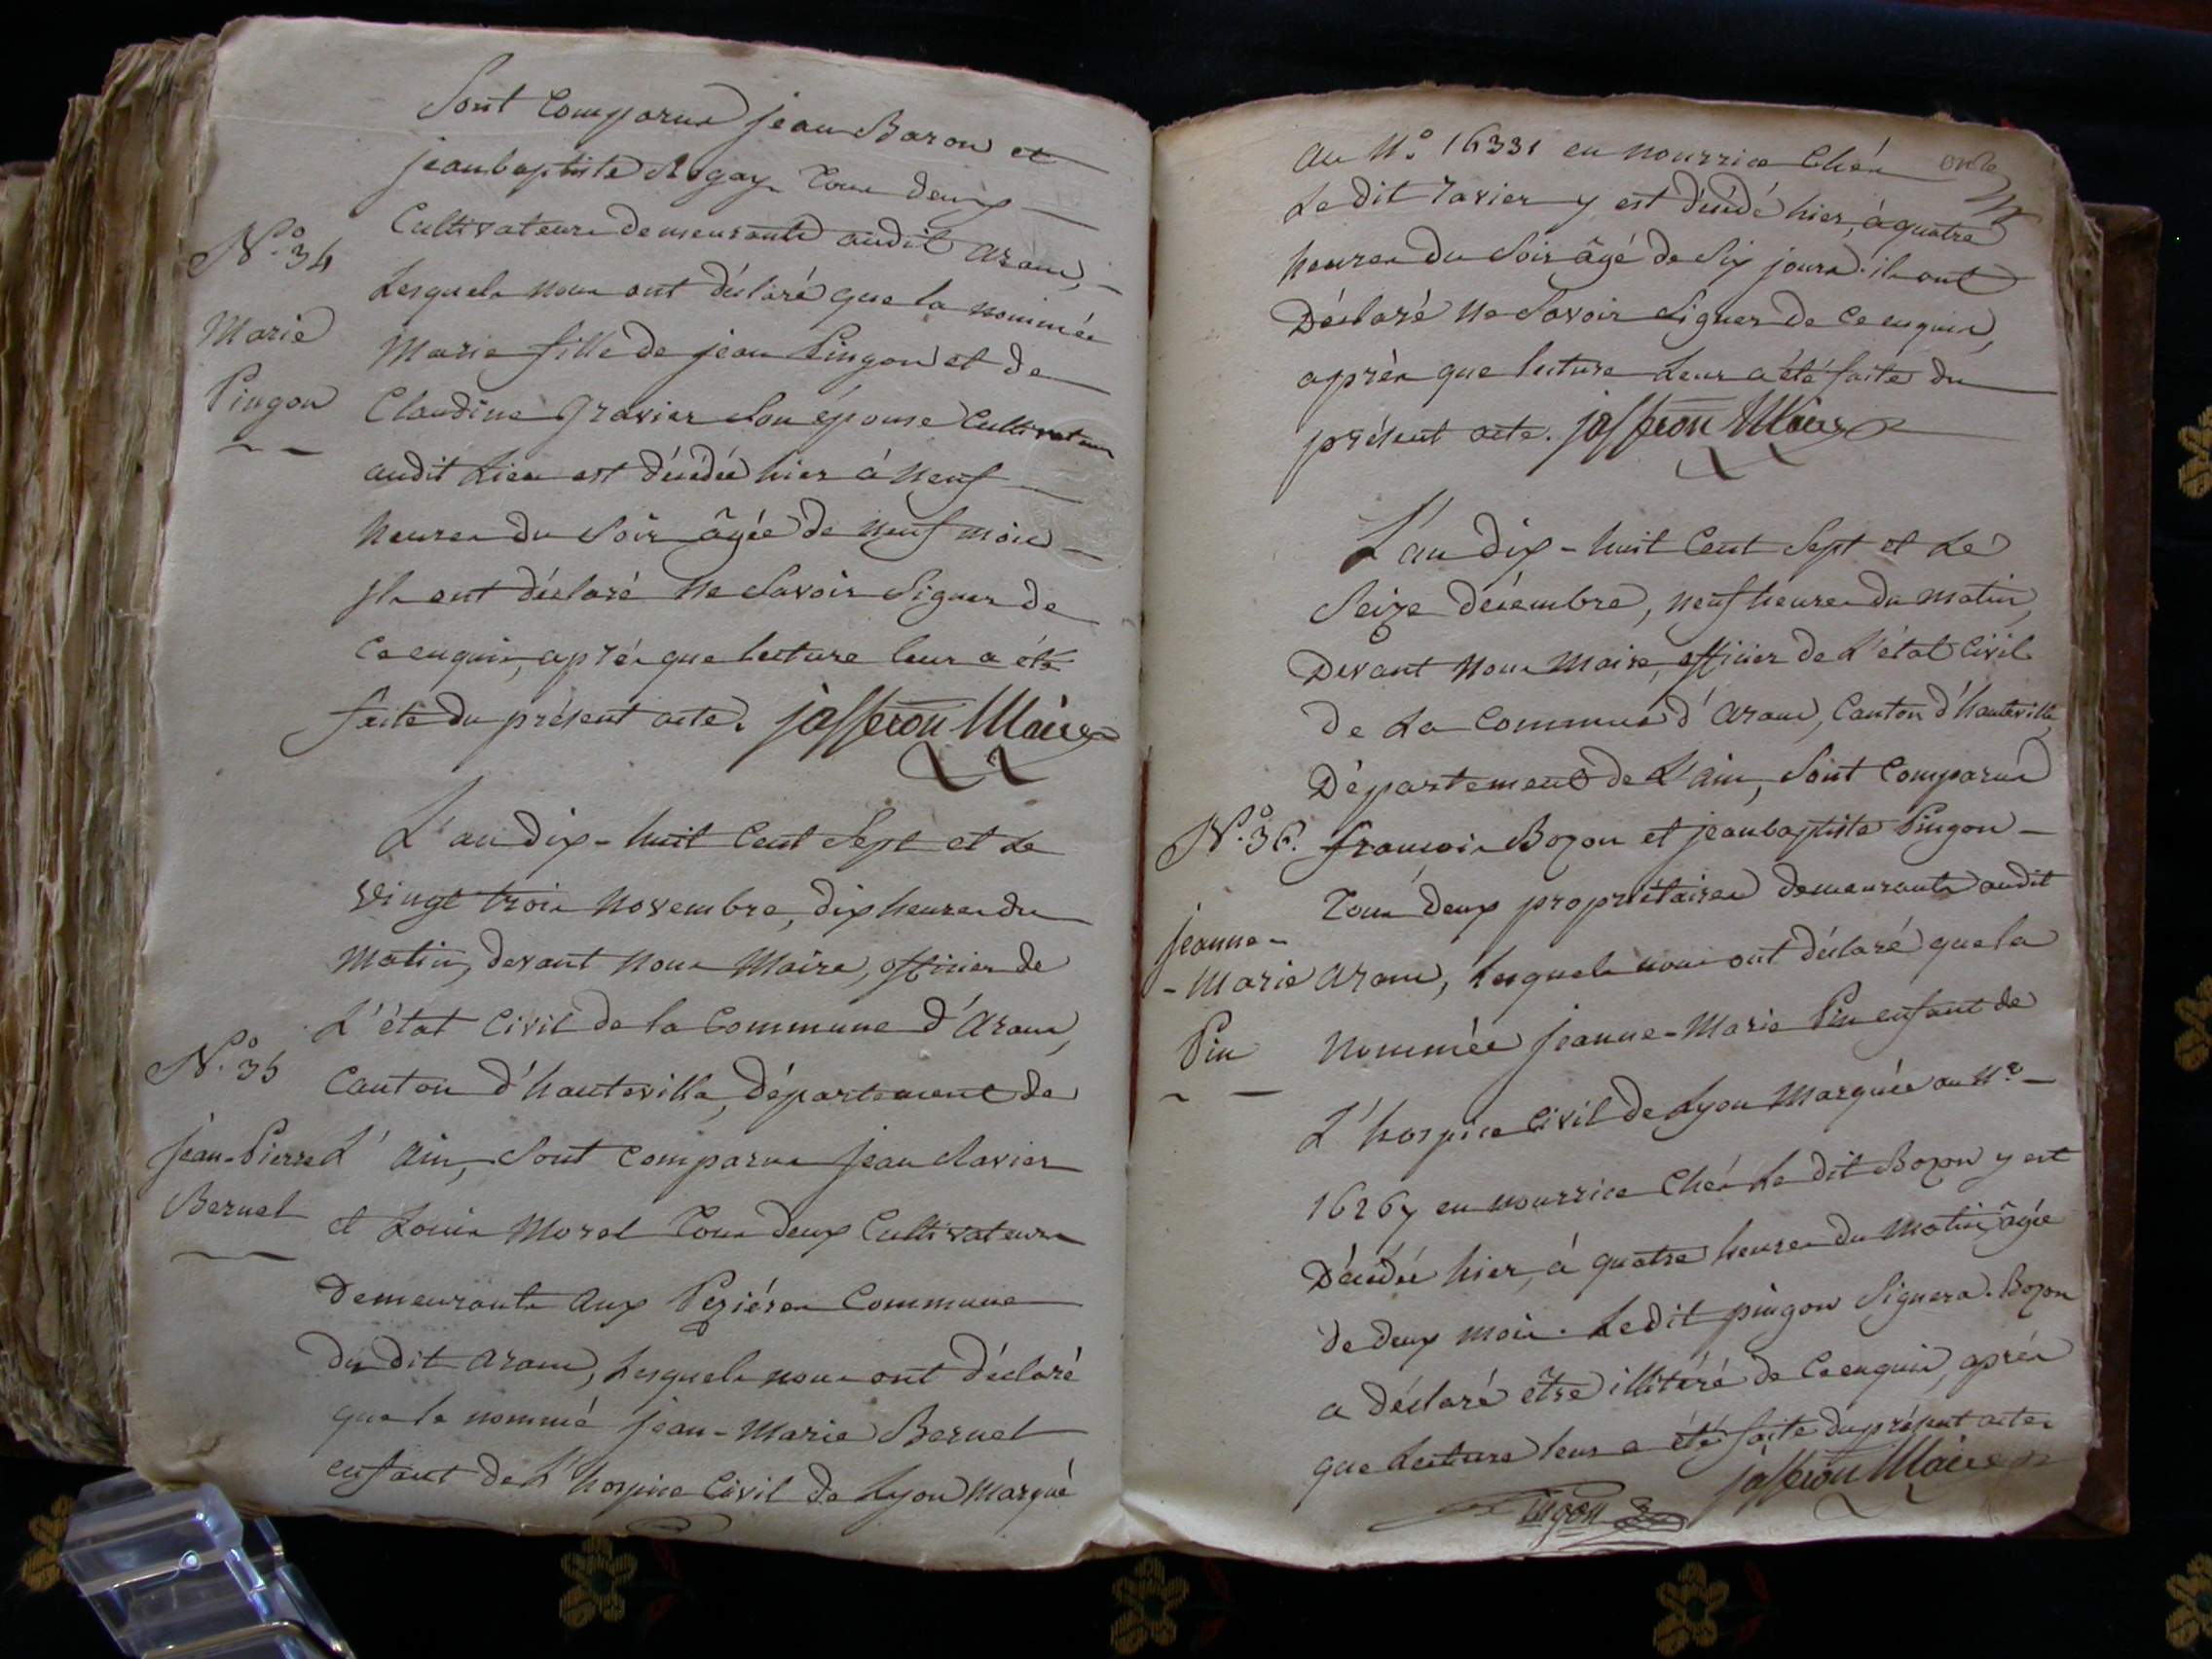 Sont Comparus jean Baron et
jean baptiste Rogay Tous deux
Cultivateurs demeurants audit aranc,
N.° 34
Lesquels nous ont déclaré que la nommée
Marie
Marie fille de jean Pingon et de
Pingon
Claudine Gravier son épouse Cultivateurs
audit Lieu est décédée hier à neuf
heures du soir âgée de neuf mois
ils ont déclaré ne savoir signer de
ce enquis, après que lecture leur a été
faite du présent acte. jafferon Maire
L'an dix-huit Cent Sept et Le
vingt trois Novembre, dix heures du
Matin, devant nous Maire, officier de
L'état Civil de la Commune d'Aranc,
N.° 35
Canton d'hauteville, département de
jean-Pierre
L'ain, Sont Comparus jean
Bernel
et Louis Morel Tous deux Cultivateurs
demeurants aux Pézières Commune
du dit aranc, Lesquels nous ont déclaré
que le nommé jean-Marie Bernel
enfant de L'hospice Civil de Lyon Marqué
au N.° 16331 en nourrice Chés
Le dit y est décédé hier, à quatre
heures du soir âgé de Six jours. ils ont
Déclaré ne Savoir signer de ce enquis,
après que lecture Leur a été faite du
présent acte. jafferon Maire
L'an dix-huit Cent Sept et Le
Seize décembre, neuf heures du matin,
Devant nous Maire, officier de L'état Civil
de La Commune d'aranc, Canton d'hauteville
Département de L'ain, Sont Comparus
N.° 36. françois Bozon et jean baptiste Pingon
Tous deux propriétaires demeurants audit
jeanne-
-Marie
aranc, Lesquels nous ont déclaré que la
Pin
Nommée jeanne-Marie Pin enfant de
L'hospice Civil de Lyon Marquée au N.°
16267 en nourrice Chés Le dit Bozon y est
Décédée hier, à quatre heures du matin, âgée
de deux mois. Le dit pingon Signera. Bozon
a déclaré être illitéré de Ce enquis, après
que Lecture leur a été faite du présent acte.
Pingon jafferon Maire